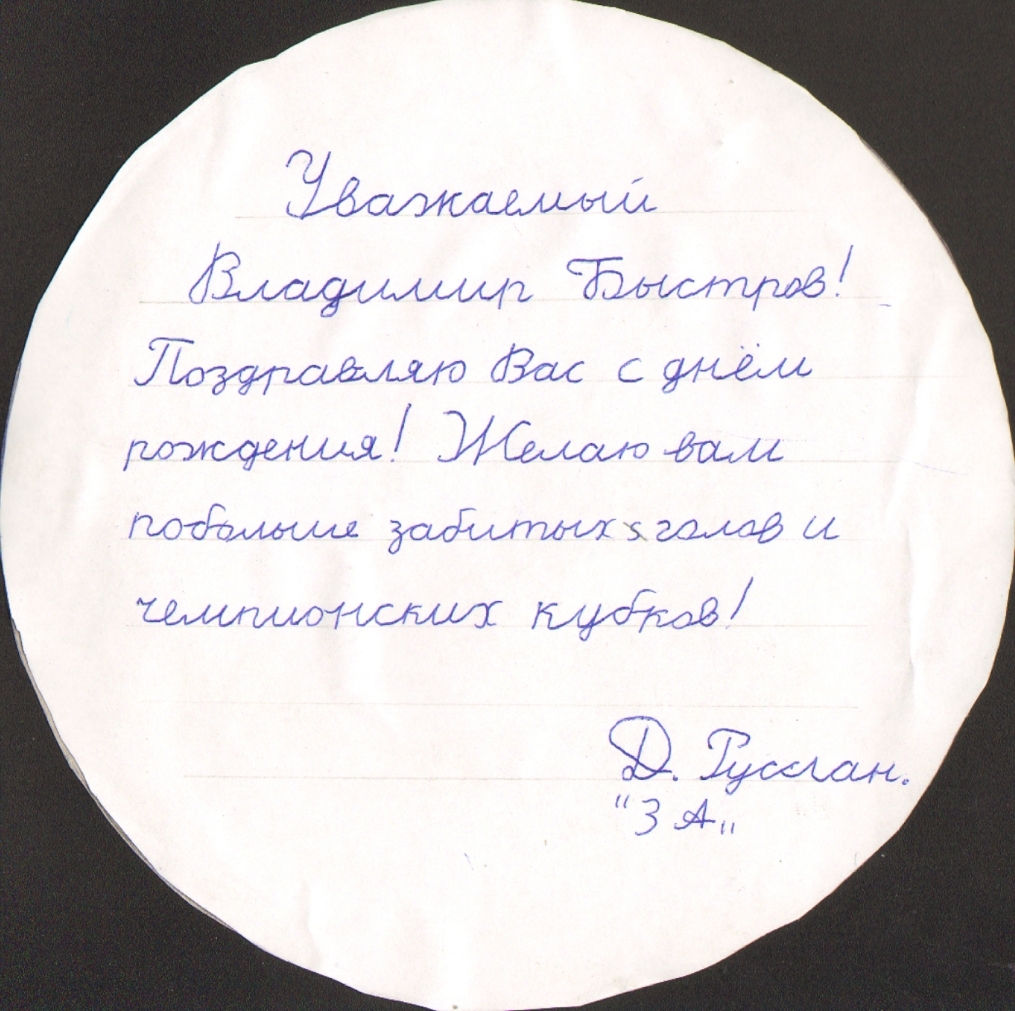 Уважаемый
Владимир Быстров!
Поздравляю Вас с днём
рождения! Желаю вам
побольше забитых голов и
чемпионских кубков!
Д. Руслан.
"3 А„